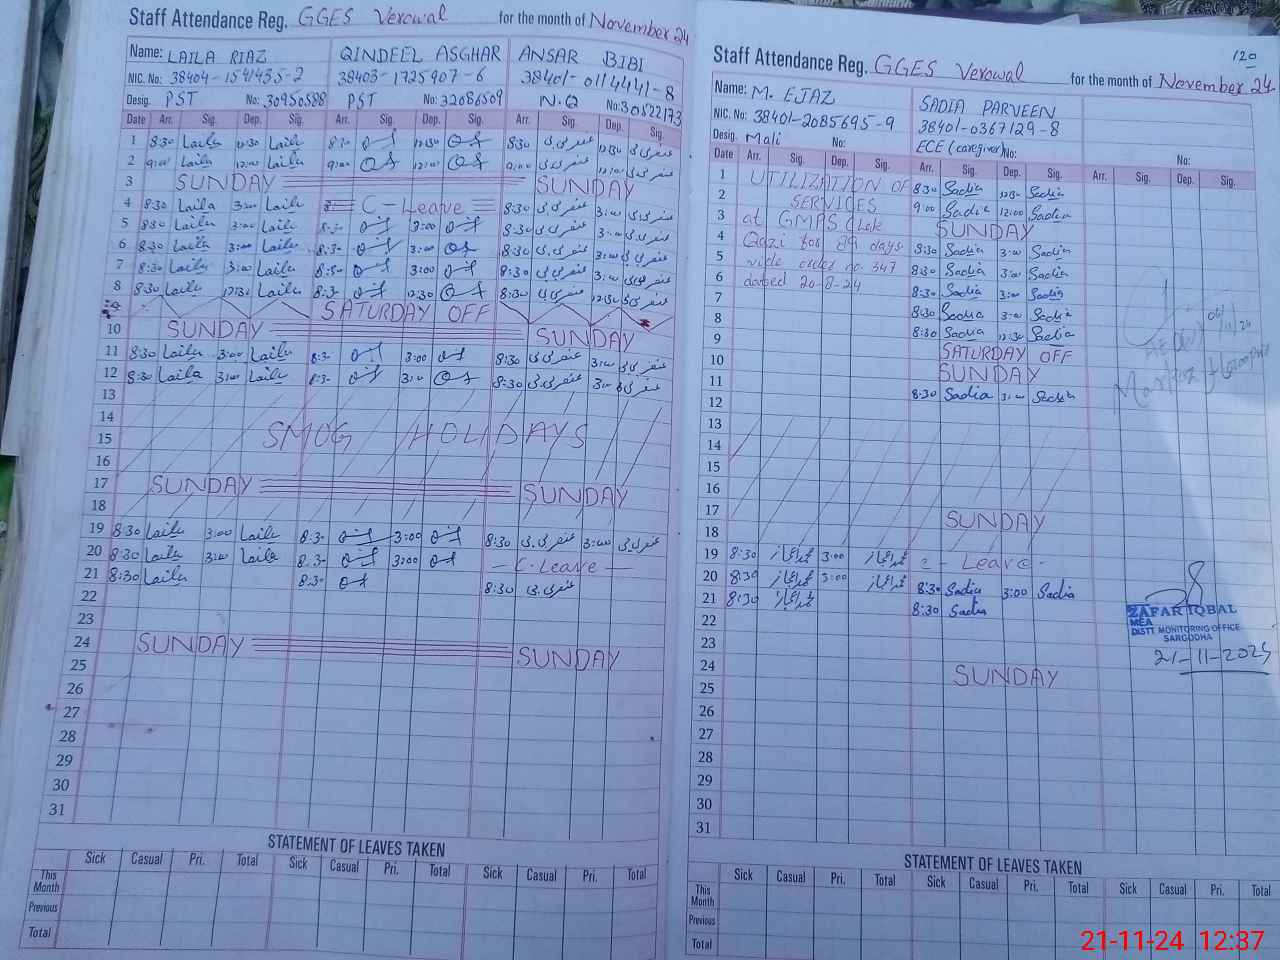 Staff Attendance Reg. GGES Verowal for the month of November 24
Name: LAILA RIAZ QINDEEL ASGHAR ANSAR BIBI
NIC. No: 38404-1541435-2 38403-1725907-6 38401-0114441-8
Desig. PST No: 30950588 PST No: 32086509 N.Q No: 30822173
Date Arr. Sig. Dep. Sig. Arr. Sig. Dep. Sig. Arr. Sig. Dep. Sig.
1 8:30 Laila 12:30 Laila 8:30 12:30 8:30 12:30
2 9:00 Laila 12:00 Laila 9:00 12:00 9:00 12:00
3 SUNDAY SUNDAY
4 8:30 Laila 3:00 Laila C-Leave 8:30 3:00
5 8:30 Laila 3:00 Laila 8:30 3:00 8:30 3:00
6 8:30 Laila 3:00 Laila 8:30 3:00 8:30 3:00
7 8:30 Laila 3:00 Laila 8:30 3:00 8:30 3:00
8 8:30 Laila 12:30 Laila 8:30 12:30 8:30 12:30
SATURDAY OFF
10 SUNDAY SUNDAY
11 8:30 Laila 3:00 Laila 8:30 3:00 8:30 3:00
12 8:30 Laila 3:00 Laila 8:30 3:00 8:30 3:00
13
14
15 SMOG HOLIDAYS
16
17 SUNDAY SUNDAY
18
19 8:30 Laila 3:00 Laila 8:30 3:00 8:30 3:00
20 8:30 Laila 3:00 Laila 8:30 3:00 - C.Leave -
21 8:30 Laila 8:30 8:30
22
23
24 SUNDAY SUNDAY
25
26
27
28
29
30
31
STATEMENT OF LEAVES TAKEN
Sick Casual Pri. Total Sick Casual Pri. Total Sick Casual Pri. Total
This Month
Previous
Total
120
Staff Attendance Reg. GGES Verowal for the month of November 24
Name: M. EJAZ SADIA PARVEEN
NIC. No: 38401-2085695-9 38401-0367129-8
Desig. Mali No: ECE (caregiver) No: No:
Date Arr. Sig. Dep. Sig. Arr. Sig. Dep. Sig. Arr. Sig. Dep. Sig.
1 UTILIZATION OF 8:30 Sadia 12:30 Sadia
2 SERVICES 9:00 Sadia 12:00 Sadia
3 at GMPS Chak SUNDAY
4 Qazi for 89 days 8:30 Sadia 3:00 Sadia
5 vide order no. 347 8:30 Sadia 3:00 Sadia
6 dated 20-8-24 8:30 Sadia 3:00 Sadia
7 8:30 Sadia 3:00 Sadia
8 8:30 Sadia 12:30 Sadia
9 SATURDAY OFF
10 SUNDAY
11 8:30 Sadia 3:00 Sadia
12
13
14
15
16
17 SUNDAY
18
19 8:30 محمد اعجاز 3:00 محمد اعجاز C - Leave -
20 8:30 محمد اعجاز 3:00 محمد اعجاز 8:30 Sadia 3:00 Sadia
21 8:30 محمد اعجاز 8:30 Sadia
22
23
24 SUNDAY
25
26
27
28
29
30
31
ZAFAR IQBAL
MEA
DISTT MONITORING OFFICE
SARGODHA
21-11-2024
STATEMENT OF LEAVES TAKEN
Sick Casual Pri. Total Sick Casual Pri. Total Sick Casual Pri. Total
This Month
Previous
Total
21-11-24 12:37